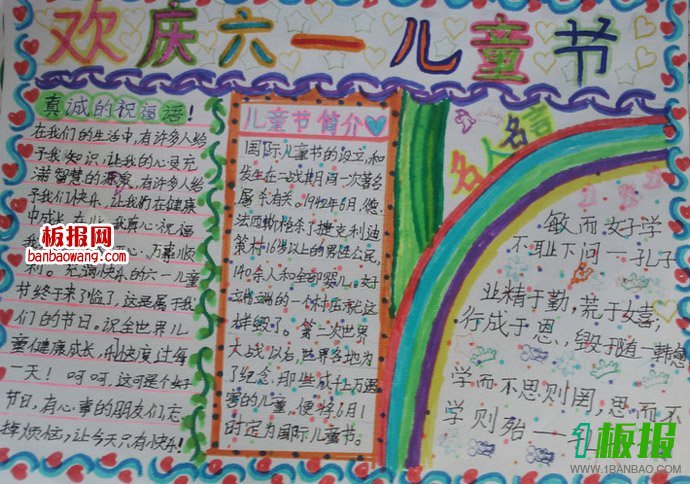 欢庆六一儿童节
真诚的祝福语!
在我们的生活中,有许多人给
予我知识,让我的心灵充
满智慧的源泉,有许多人给
予我们快乐,让我们在健康
中成长,在此,我真心祝福
万事顺
利。充满快乐的六一儿童
节终于来了临了,这是属于我
们的节日。祝全世界儿
童健康成长,永快度过每
一天!呵呵,这可是个好
节日,有心事的朋友们,忘
掉烦恼,让今天只有快乐!
板报网
banbaowang.com
儿童节简介
国际儿童节的设立,和
发生在二战期间一次著名
屠杀有关。1942年6月,德
法西斯枪杀了捷克利迪
策村16岁以上的男性公民,
140余人和全部婴儿。好
端端的一个村庄就这
样毁了。第一次世界
大战以后,世界各地为
了纪念,那些成千上万遇
害的儿童,便将6月1
时定为国际儿童节。
名人名言
敏而好学
不耻下问一孔子
业精于勤,荒于女喜,
行成于思,毁于随一韩愈
学而不思则罔,思而不
学则殆一
板报
WWW.1BANBAO.COM